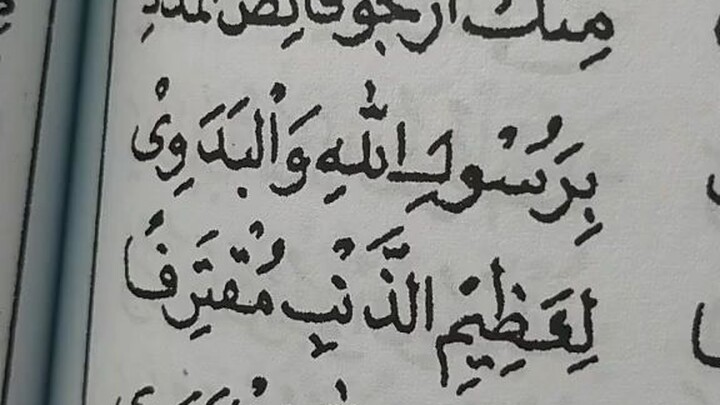 مِنْكَ أَرْجُو فَائِضَ الْمَدَدِ
بِرَسُوْلِ اللّٰهِ وَالْبَدَوِيْ
لِعَظِيْمِ الذَّنْبِ مُقْتَرِفًا